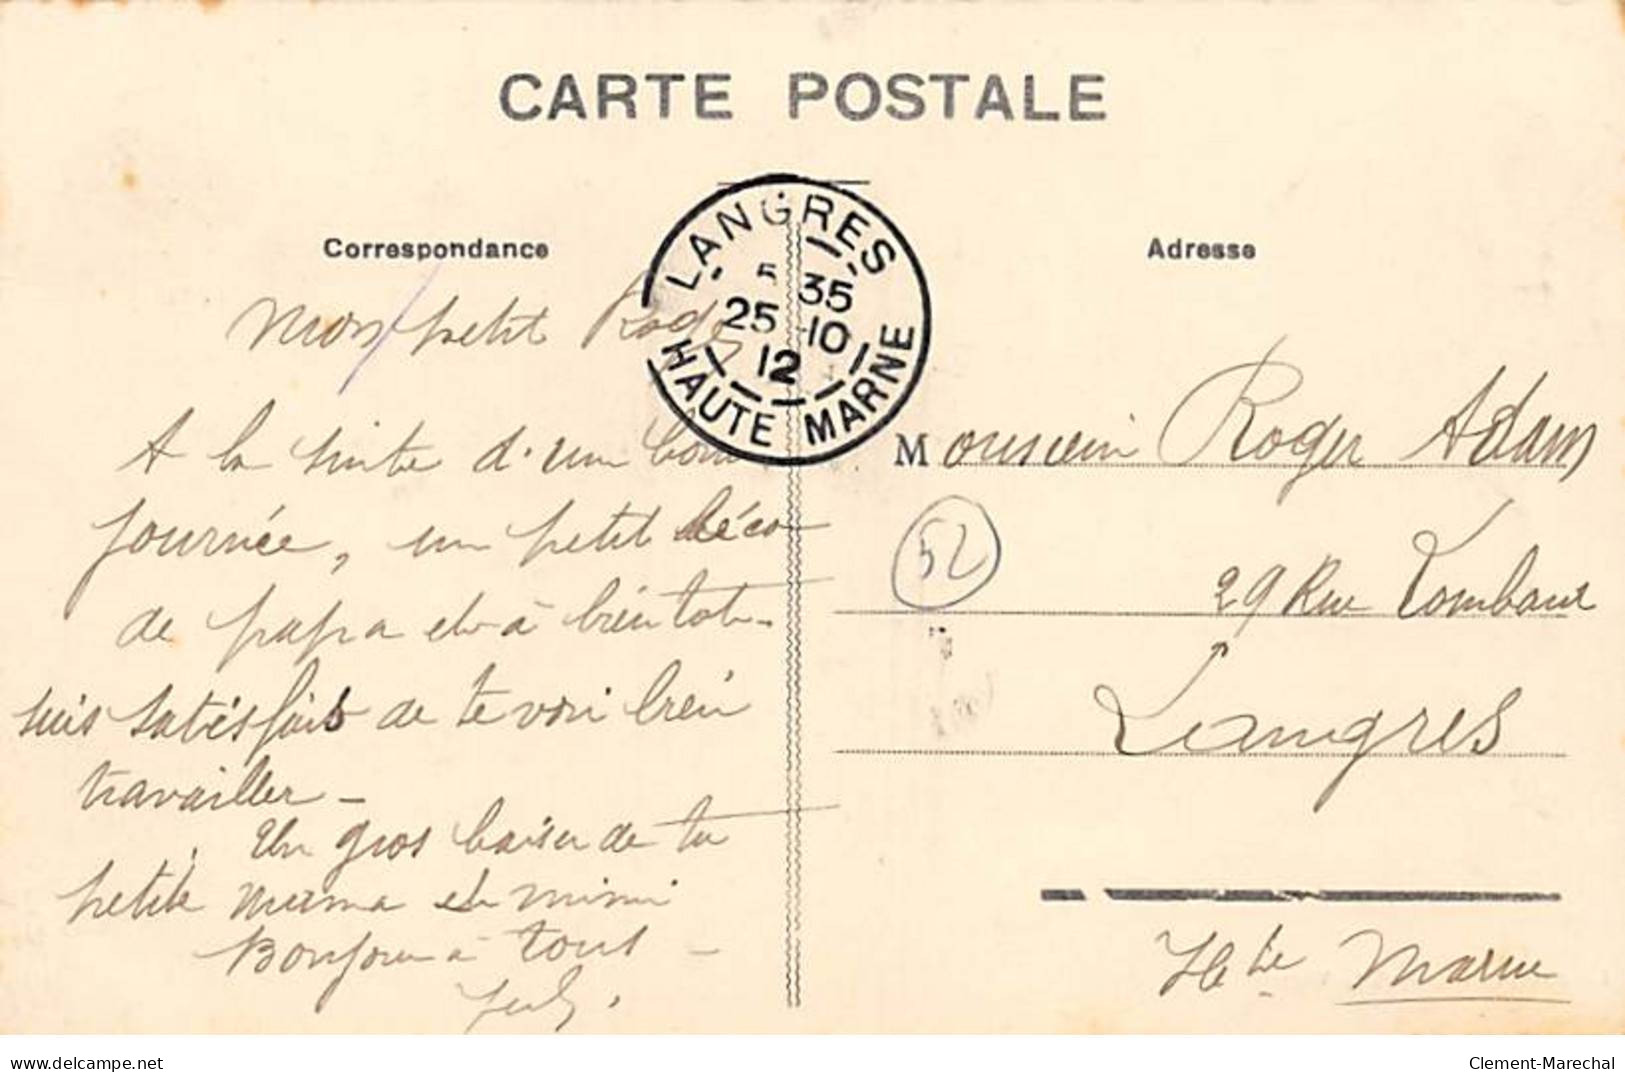 CARTE POSTALE
Correspondance
Adresse
LANGRES
5 35
25 -10
12
HAUTE MARNE
Mon petit Roger
A la suite d'une bonne
journée, un petit
de papa et à bientot.
suis satisfait de te voir bien
travailler -
Un gros baiser de ta
petite mema et mimi
Bonjour à tous -
Monsieur Roger Adam
52
29 Rue
Langres
Hte Marne
delcampe.net
Clement-Marechal